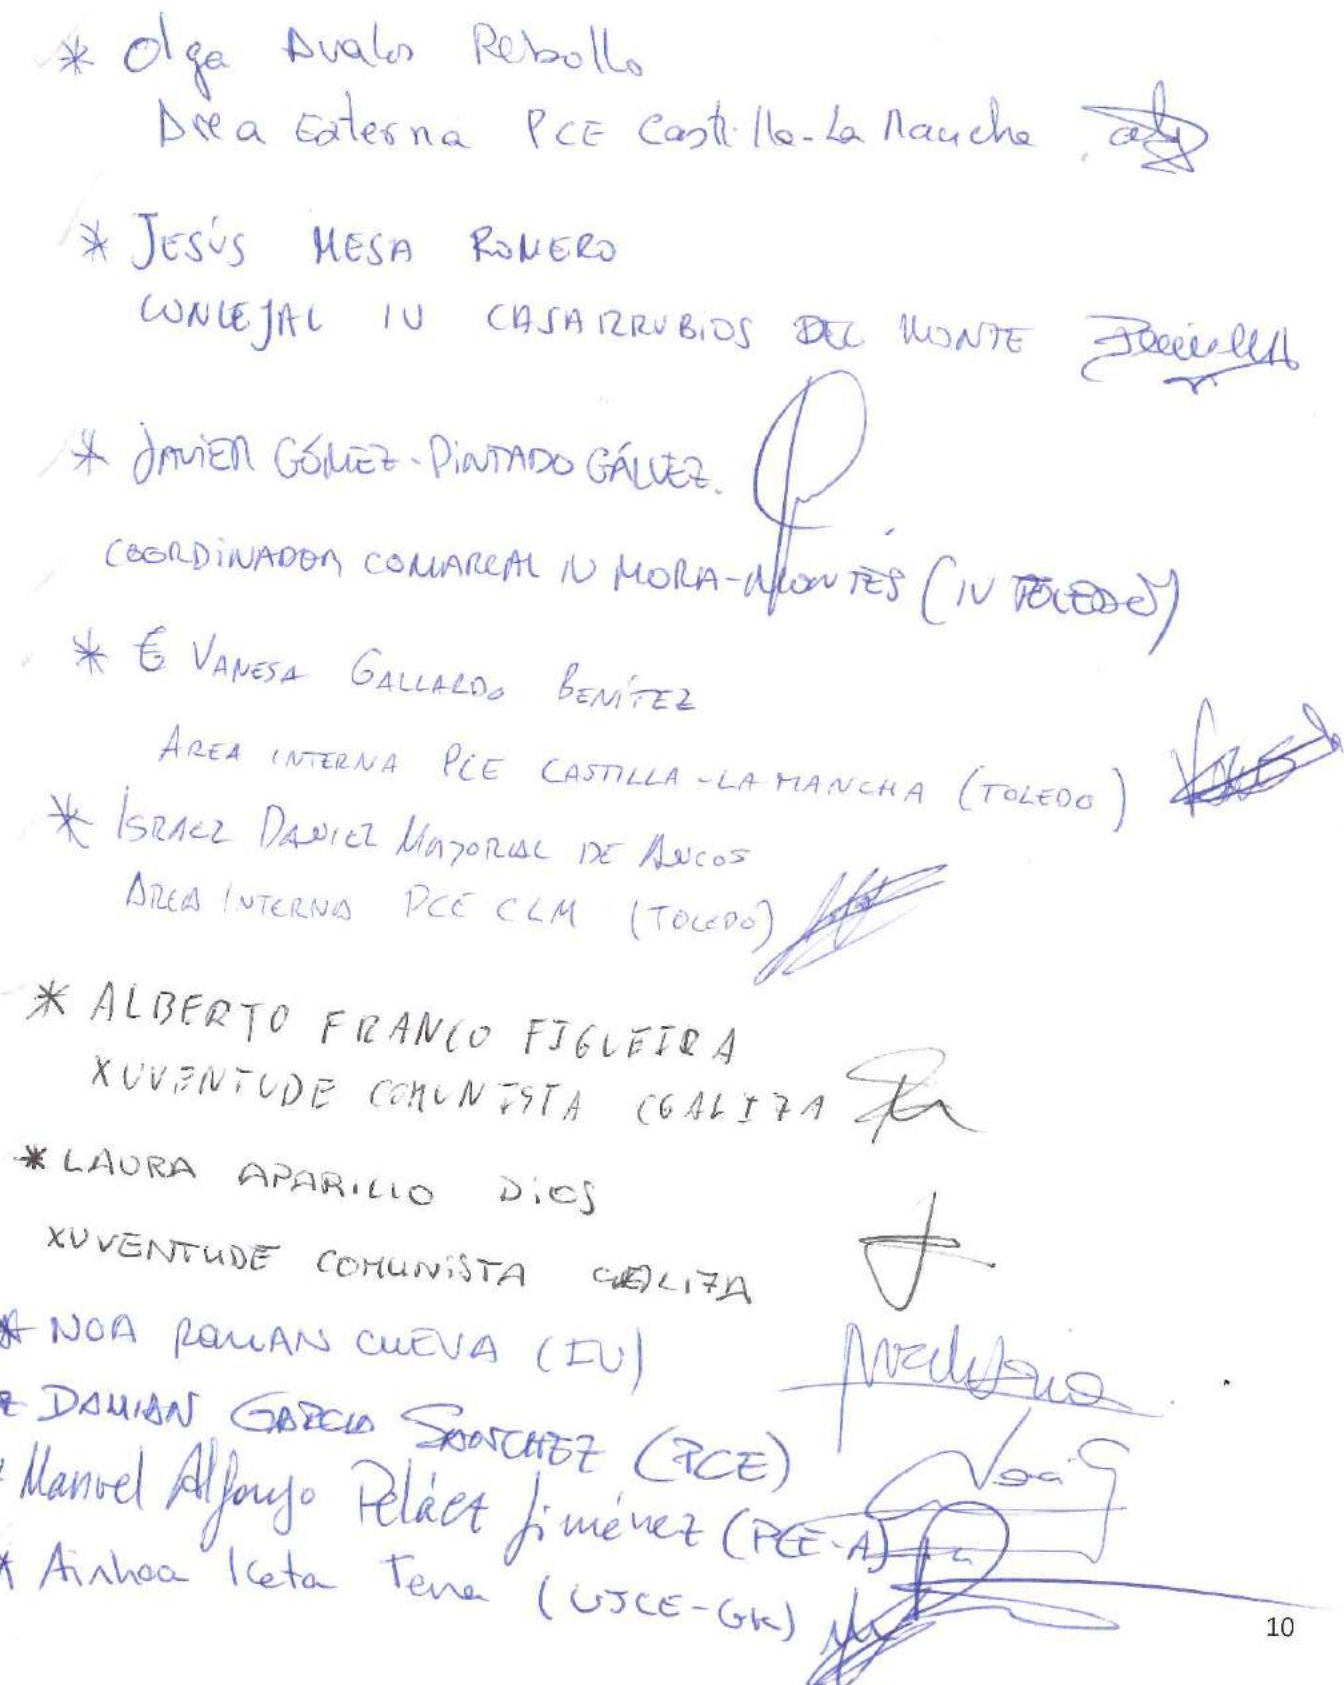 * Olga Avalos Rebollo
Area Externa PCE Castilla-La Mancha
* JESÚS MESA ROMERO
CONCEJAL IU CASARRUBIOS DEL MONTE
* JAVIER GÓMEZ-PINTADO GÁLVEZ.
COORDINADOR COMARCAL IU MORA-MONTES (IU TOLEDO)
* E VANESA GALLARDO BENÍTEZ
AREA INTERNA PCE CASTILLA-LA MANCHA (TOLEDO)
* ISRAEL DANIEL MAYORAL DE ANCOS
AREA INTERNA PCE CLM (TOLEDO)
* ALBERTO FRANCO FIGUEIRA
XUVENTUDE COMUNISTA GALIZA
* LAURA APARICIO DIOS
XUVENTUDE COMUNISTA GALIZA
* NOA ROMAN CUEVA (IU)
* DAMIAN GARCIA SANCHEZ (PCE)
* Manuel Alfonso Peláez Jiménez (PCE-A)
* Ainhoa Keta Tena (UJCE-GK)
10